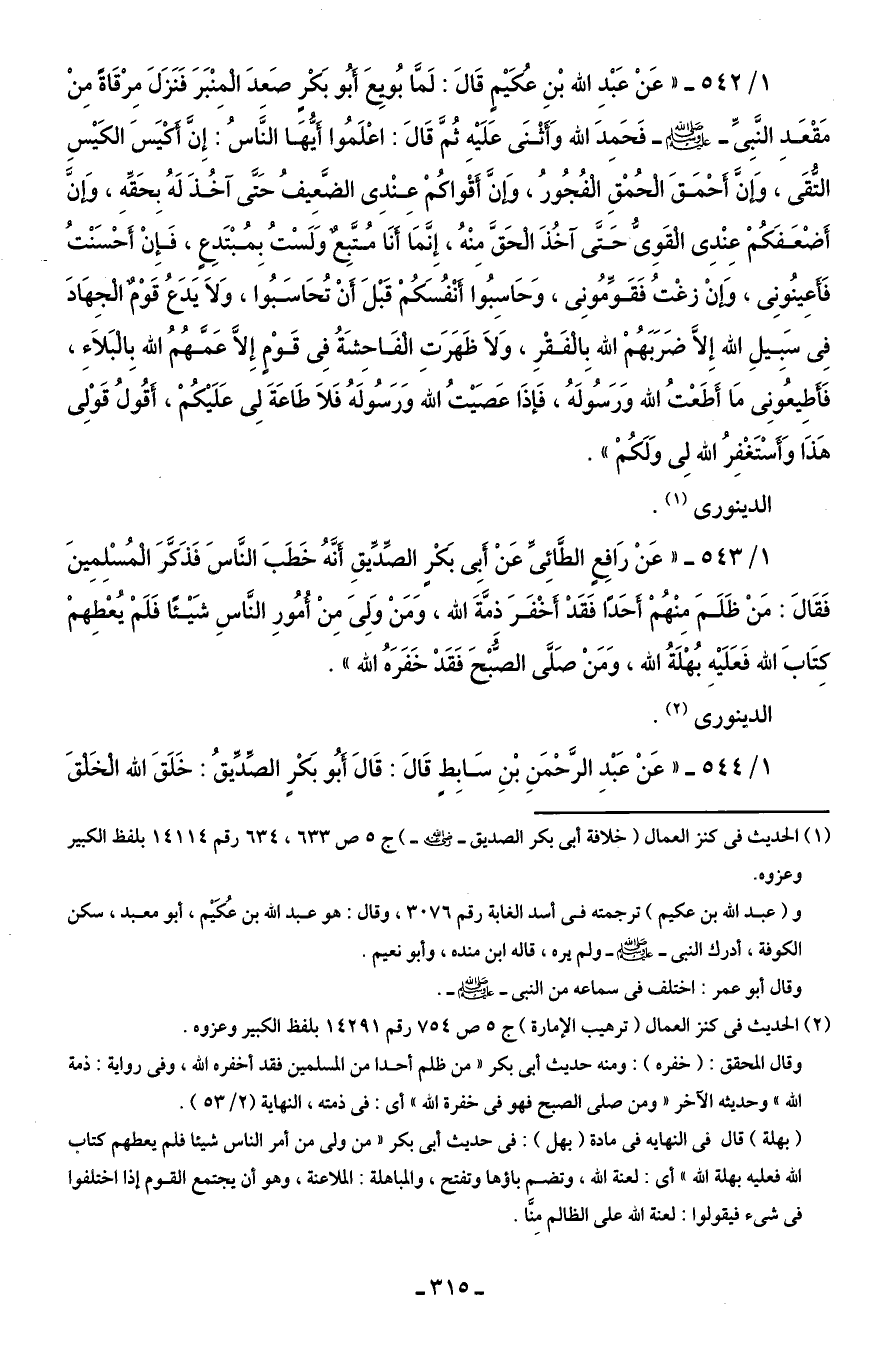 ١/ ٥٤٢ ـ « عَنْ عَبْدِ الله بْنِ عُكَيْمٍ قَالَ : لَمَّا بُويِعَ أَبُو بَكْرٍ صَعِدَ الْمِنْبَرَ فَنَزَلَ مِرْقَاةً مِنْ
مَقْعَدِ النَّبِىِّ ـ ﷺ ـ فَحَمِدَ الله وَأَثْنَى عَلَيْهِ ثُمَّ قَالَ : اعْلَمُوا أَيُّهَا النَّاسُ : إِنَّ أَكْيَسَ الكَيْسِ
التُّقَى ، وَإِنَّ أَحْمَقَ الْحُمْقِ الْفُجُورُ ، وَإِنَّ أَقْوَاكُمْ عِنْدِى الضَّعِيفُ حَتَّى آخُذَ لَهُ بِحَقِّهِ ، وَإِنَّ
أَضْعَفَكُمْ عِنْدِى القَوِىُّ حَتَّى آخُذَ الْحَقَّ مِنْهُ ، إِنَّمَا أَنَا مُتَّبِعٌ وَلَسْتُ بِمُبْتَدِعٍ ، فَإِنْ أَحْسَنْتُ
فَأَعِينُونِى ، وَإِنْ زِغْتُ فَقَوِّمُونِى ، وَحَاسِبُوا أَنْفُسَكُمْ قَبْلَ أَنْ تُحَاسَبُوا ، وَلاَ يَدَعُ قَوْمٌ الْجِهَادَ
فِى سَبِيلِ الله إِلاَّ ضَرَبَهُمْ الله بِالْفَقْرِ ، وَلاَ ظَهَرَتِ الْفَاحِشَةُ فِى قَوْمٍ إِلاَّ عَمَّهُمُ الله بِالْبَلاَءِ ،
فَأَطِيعُونِى مَا أَطَعْتُ الله وَرَسُولَهُ ، فَإِذَا عَصَيْتُ الله وَرَسُولَهُ فَلاَ طَاعَةَ لِى عَلَيْكُمْ ، أَقُولُ قَوْلِى
هَذَا وَأَسْتَغْفِرُ الله لِى وَلَكُمْ » .
الدينورى (١) .
١/ ٥٤٣ ـ « عَنْ رَافِعٍ الطَّائِىِّ عَنْ أَبِى بَكْرٍ الصِّدِّيقِ أَنَّهُ خَطَبَ النَّاسَ فَذَكَّرَ الْمُسْلِمِينَ
فَقَالَ : مَنْ ظَلَمَ مِنْهُمْ أَحَدًا فَقَدْ أَخْفَرَ ذِمَّةَ الله ، وَمَنْ وَلِىَ مِنْ أُمُورِ النَّاسِ شَيْئًا فَلَمْ يُعْطِهِمْ
كِتَابَ الله فَعَلَيْهِ بُهْلَةُ الله ، وَمَنْ صَلَّى الصُّبْحَ فَقَدْ خَفَرَهُ الله » .
الدينورى (٢) .
١/ ٥٤٤ ـ « عَنْ عَبْدِ الرَّحْمَنِ بْنِ سَابِطٍ قَالَ : قَالَ أَبُو بَكْرٍ الصِّدِّيقُ : خَلَقَ الله الْخَلْقَ
(١) الحديث فى كنز العمال ( خلافة أبى بكر الصديق ـ رضي الله عنه ـ ) ج ٥ ص ٦٣٣ ، ٦٣٤ رقم ١٤١١٤ بلفظ الكبير
وعزوه.
و ( عبد الله بن عكيم ) ترجمته فى أسد الغابة رقم ٣٠٧٦ ، وقال : هو عبد الله بن عُكَيْم ، أبو معبد ، سكن
الكوفة ، أدرك النبى ـ ﷺ ـ ولم يره ، قاله ابن منده ، وأبو نعيم .
وقال أبو عمر : اختلف فى سماعه من النبى ـ ﷺ ـ .
(٢) الحديث فى كنز العمال ( ترهيب الإمارة ) ج ٥ ص ٧٥٤ رقم ١٤٢٩١ بلفظ الكبير وعزوه .
وقال المحقق : ( خفره ) : ومنه حديث أبى بكر « من ظلم أحدا من المسلمين فقد أخفره الله ، وفى رواية : ذمة
الله » وحديثه الآخر « ومن صلى الصبح فهو فى خفرة الله » أى : فى ذمته ، النهاية (٢/ ٥٣ ) .
( بهلة ) قال فى النهايه فى مادة ( بهل ) : فى حديث أبى بكر « من ولى من أمر الناس شيئا فلم يعطهم كتاب
الله فعليه بهلة الله » أى : لعنة الله ، وتضم باؤها وتفتح ، والمباهلة : الملاعنة ، وهو أن يجتمع القوم إذا اختلفوا
فى شىء فيقولوا : لعنة الله على الظالم مِنَّا .
ـ ٣١٥ ـ